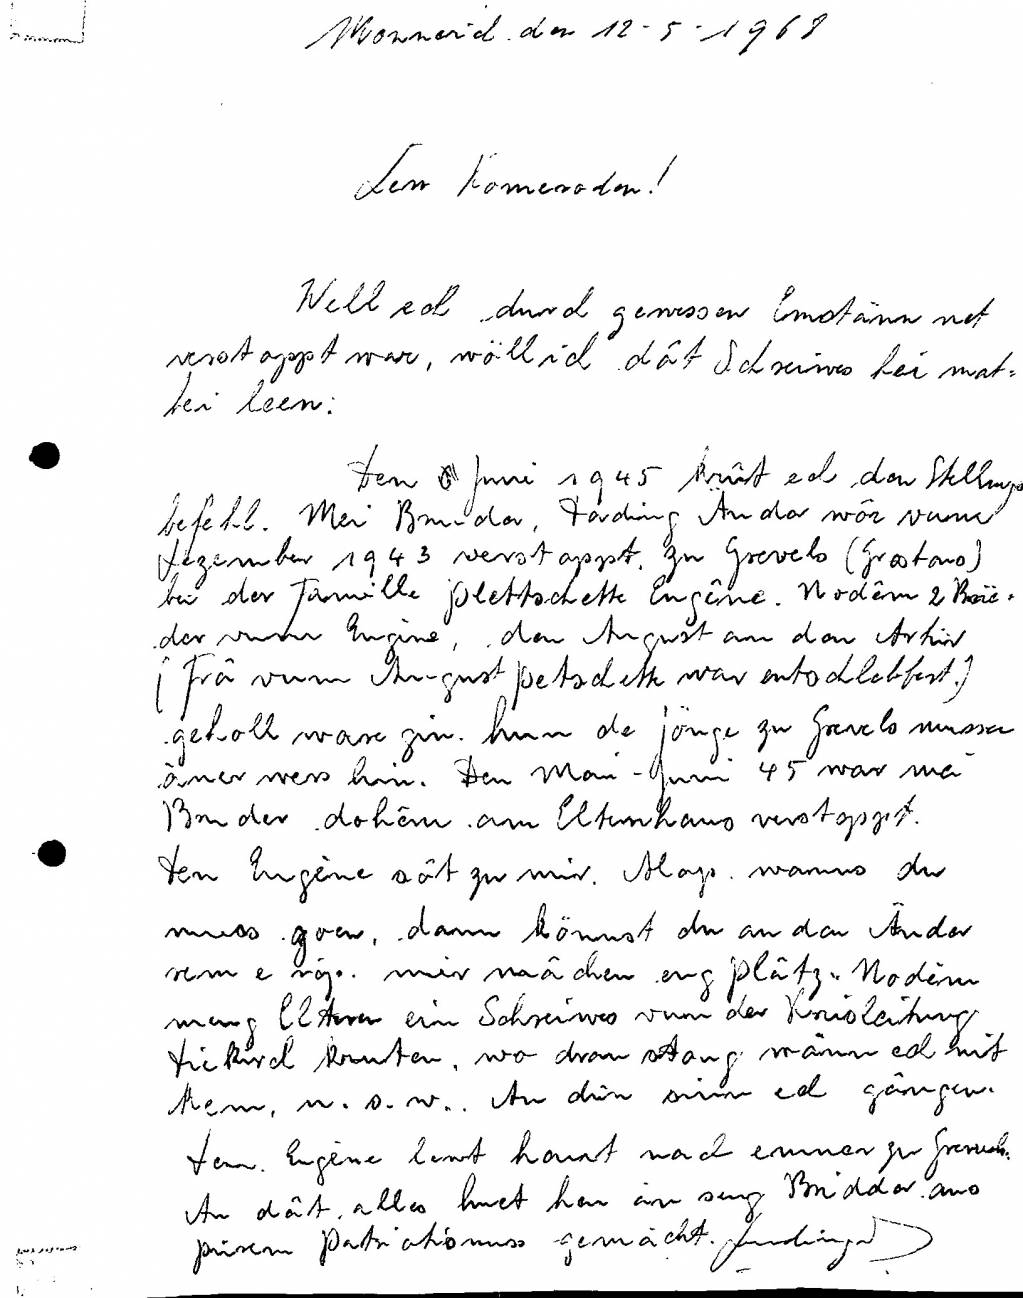 Monnerid den 12-5-1968
Lew Komeroden!
Well ech durch gewessen Emstänn net
verstoppt war, wöll ich dât Schreiwes hei mat=
bei leen:
Den Juni 1945 krût ech den Stellungs
befehl. Mei Bruder, Änder wôr vum
Dezember 1943 verstoppt, zu Grevels (Grostaus)
bei der Famille Plettschette Eugêne. Nodêm 2 Brie=
der vum Eugêne, den August an den Arthir
(Frâ vum August Petschette war entschlebfert.)
geholl ware gin. hun de Jönge zu Grevels mussen
âner wers hin. Den Mai - Juni 45 war mei
Bruder dohêm am Elternhaus verstoppt.
Den Eugêne sôt zu mir. Alop. wanns du
muss goen, dann kônnst du an den Änder
rem e rop. mir mâchen eng Plâtz. Nodêm
meng Elteren ein Schreiwes vum der Kreisleitung
Dickirch kruten, wo dran stoung wänn ech nit
kem, u. s. w.. An dun sinn ech gângen.
Den Eugêne lewt haunt nach emmer zu Grevels.
An dât alles huet hen an seng Bridder aus
purem Patriotismuss gemâcht.